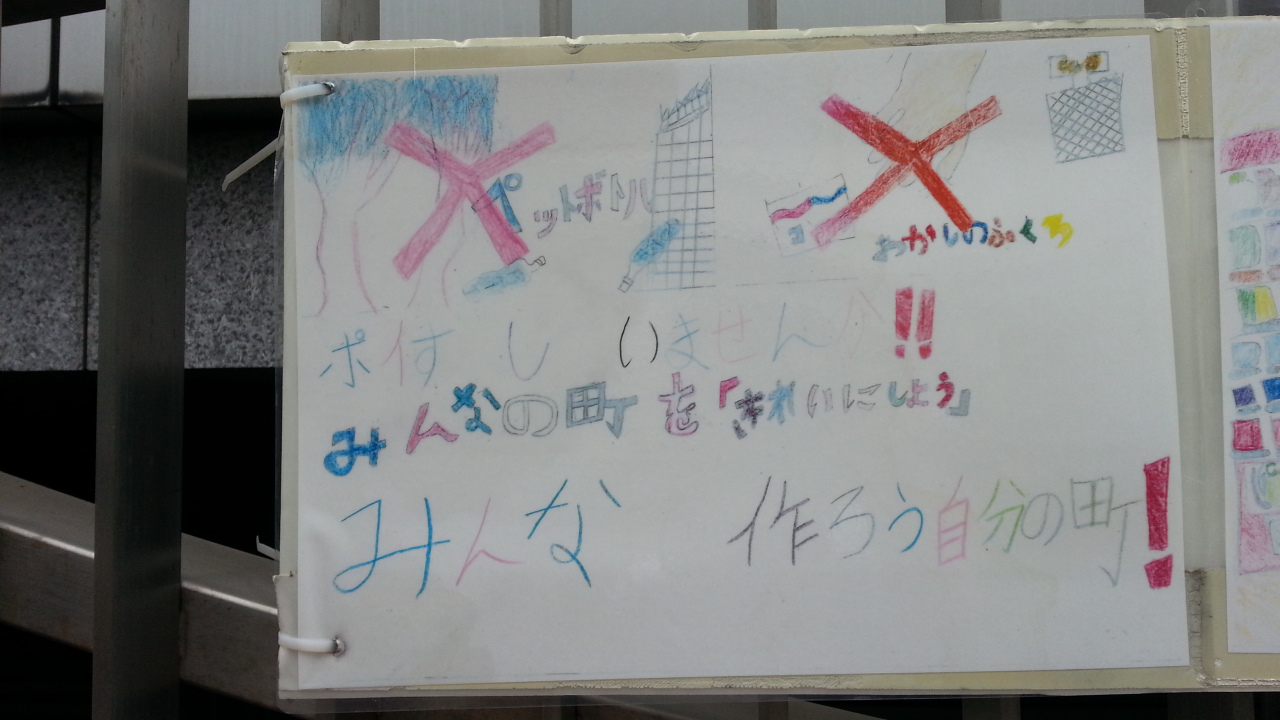 ペットボトル
おかしのふくろ
ポイすし いませんか!!
みんなの町を「きれいにしよう」
みんな 作ろう自分の町!